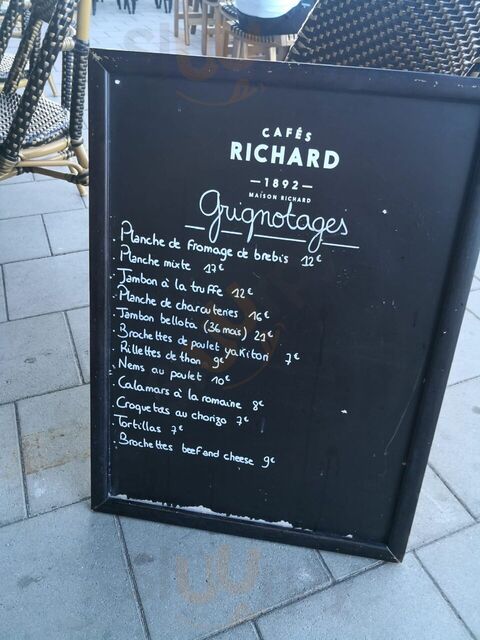 CAFÉS
RICHARD
1892
MAISON RICHARD
Grignotages
. Planche de fromage de brebis 12€
. Planche mixte 17€
. Jambon à la truffe 12€
. Planche de charcuteries 16€
. Jambon bellota (36 mois) 21€
. Brochettes de poulet yakitori 7€
. Rillettes de thon 9€
. Nems au poulet 10€
. Calamars à la romaine 8€
. Croquetas au chorizo 7€
. Tortillas 7€
. Brochettes beef and cheese 9€